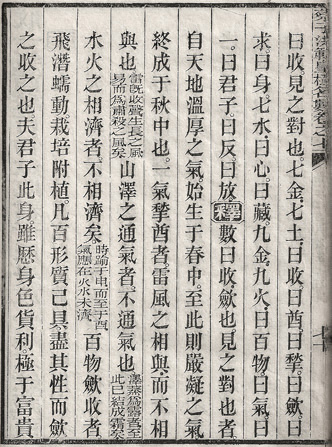 曰收見之對也。七金。七土。曰收曰酉。曰揫。曰斂。曰
求。曰身。七水。曰心。曰藏。九金。九火。曰百物。曰氣。曰
一。曰君子。曰反。曰放。釋 數曰收。歛也。見之對也者。
自天地溫厚之氣。始生于春中。至此則嚴凝之氣。
終成于秋中也。一氣揫酉者。雷風之相與。而不相
與也。當既收聲生長之風
易而為肅殺之氣矣 山澤之通氣者。不通氣也。蒸露為雲者至
此已結成霜矣
水火之相濟者。不相濟矣。時踰于中而至于酉
氣應在火水未濟 百物歛收者。
飛潛蠕動。栽培附植。凡百形質已具。盡其性而歛
之收之也。夫君子此身。雖歷身色貨利。極于富貴